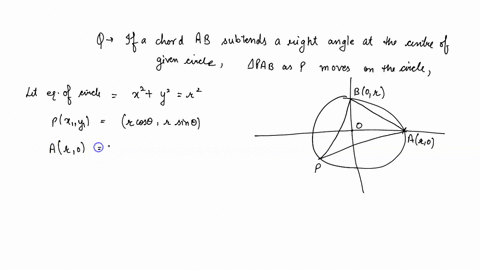 Q→ If a chord AB subtends a right angle at the centre of
given circle, ΔPAB as P moves on the circle,
Let eq. of circle = x² + y² = r²
P(x₁,y₁) = (r cosθ, r sinθ)
A(r,0) =
B(0,r)
O
A(r,0)
P